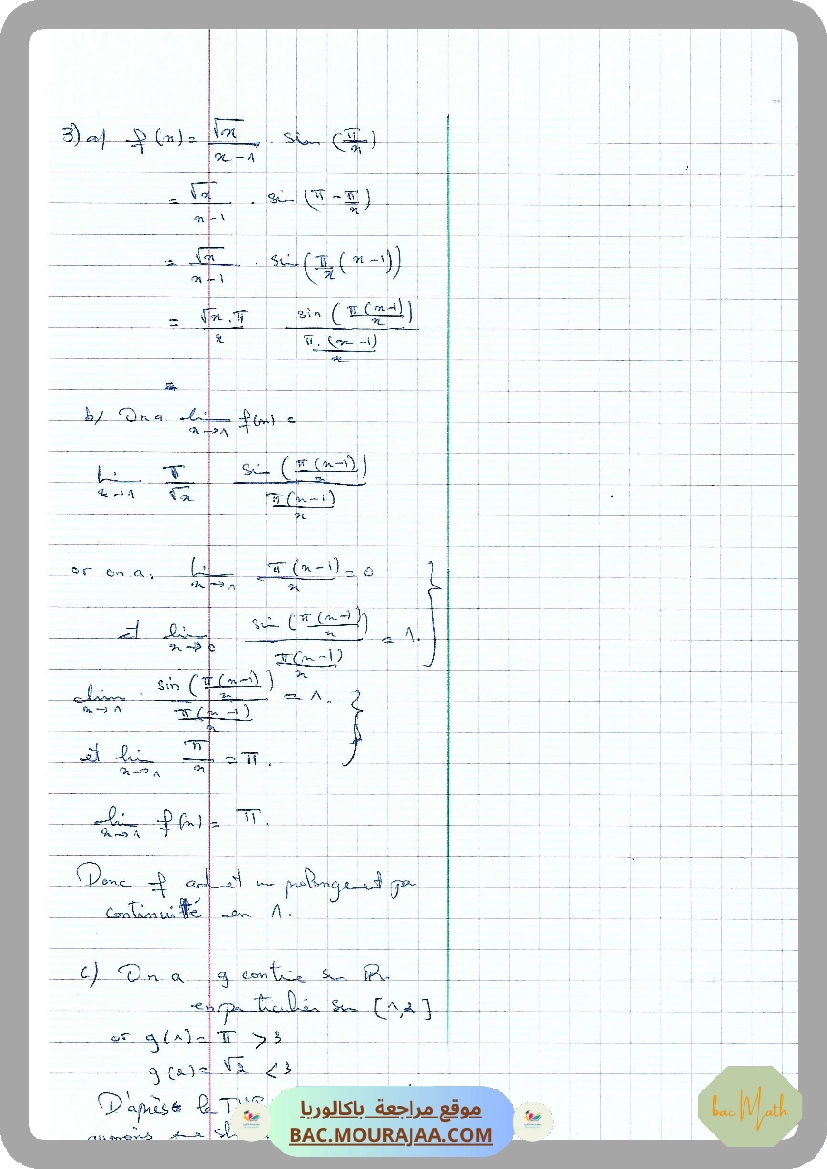 3) a/ f(x) = √x / (x-1) · sin (π/x)
= √x / (x-1) · sin (π - π/x)
= √x / (x-1) · sin (π/x (x-1))
= √x · π / x   sin (π(x-1)/x) / (π·(x-1)/x)
=
b/ On a lim x→1 f(x) =
lim x→1 π/√x   sin (π(x-1)/x) / (π(x-1)/x)
or on a. lim x→1 π(x-1)/x = 0 }
et lim x→0 sin (π(x-1)/x) / (π(x-1)/x) = 1.
lim x→1 sin (π(x-1)/x) / (π(x-1)/x) = 1. }
et lim x→1 π/x = π.
lim x→1 f(x) = π.
Donc f admet un prolongement par
continuité en 1.
c) On a g continue sur ℝ.
en particulier sur [1,2]
or g(1) = π > 3
g(2) = √2 < 3
D'après le
موقع مراجعة باكالوريا
BAC.MOURAJAA.COM
bac Math